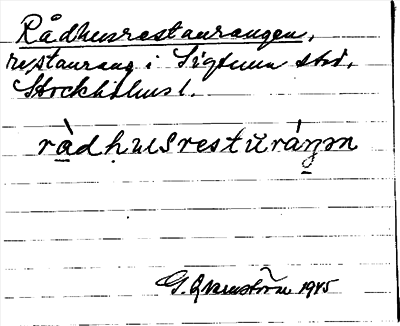 Rådhusrestaurangen,
restaurang i Sigtuna stad,
Stockholms l.
ràdhusrestŭráŋən
G. 1945